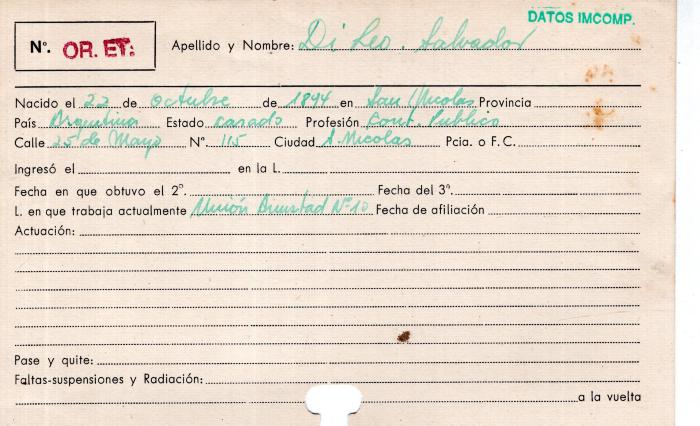 DATOS IMCOMP.
Nº. OR. ET: Apellido y Nombre: Di Leo. Salvador
Nacido el 22 de Octubre de 1894 en San Nicolas Provincia
País Argentina Estado casado Profesión Cont. Publico
Calle 25 de Mayo Nº. 115 Ciudad S. Nicolas Pcia. o F.C.
Ingresó el en la L.
Fecha en que obtuvo el 2º. Fecha del 3º.
L. en que trabaja actualmente Unión Amistad Nº 10 Fecha de afiliación
Actuación:
Pase y quite:
Faltas-suspensiones y Radiación:
a la vuelta